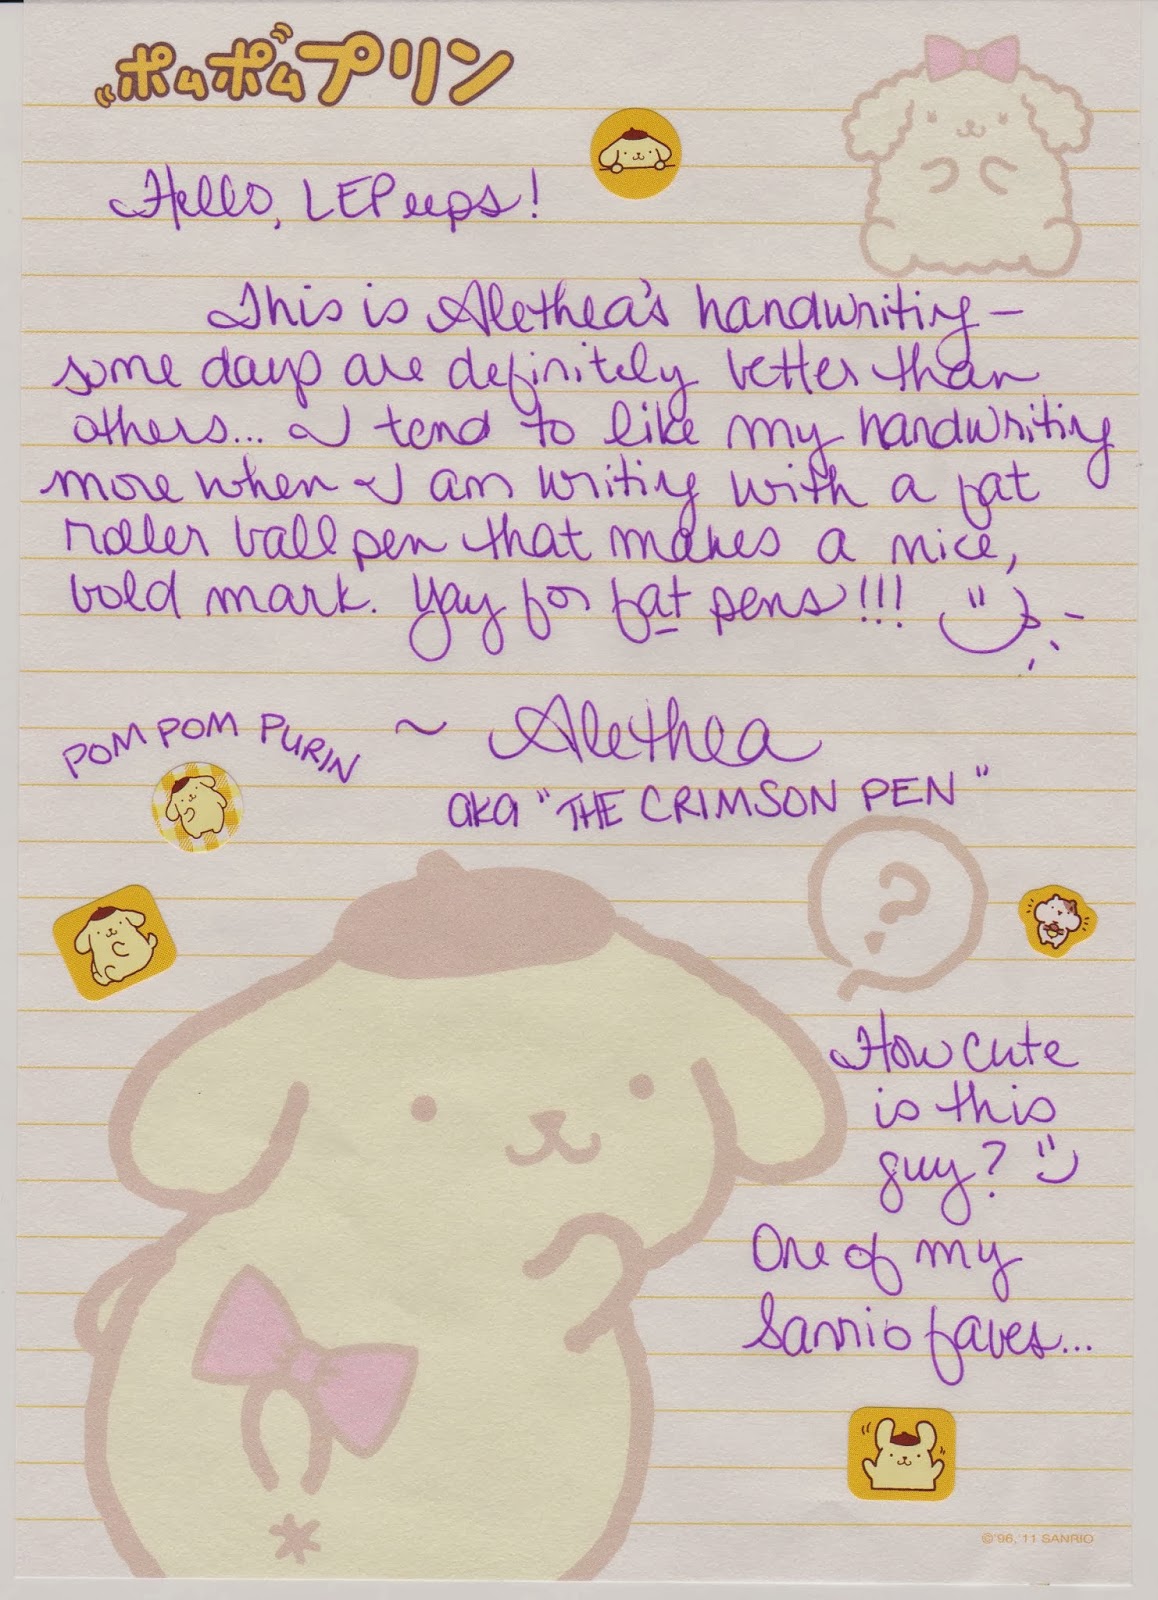 ポムポムプリン
Hello, LEPeeps!
This is Alethea's handwriting –
some days are definitely better than
others... I tend to like my handwriting
more when I am writing with a fat
roller ball pen that makes a nice,
bold mark. Yay for fat pens!!!
POM POM PURIN
~ Alethea
aka "THE CRIMSON PEN"
?
How cute
is this
guy?
One of my
Sanrio faves...
©'96, '11 SANRIO